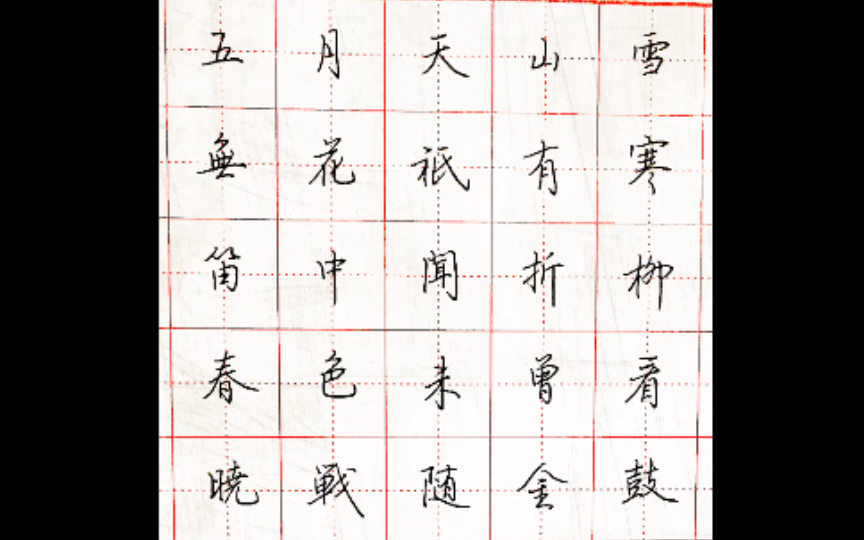 五月天山雪
無花祇有寒
笛中聞折柳
春色未曾看
曉戰随金鼓